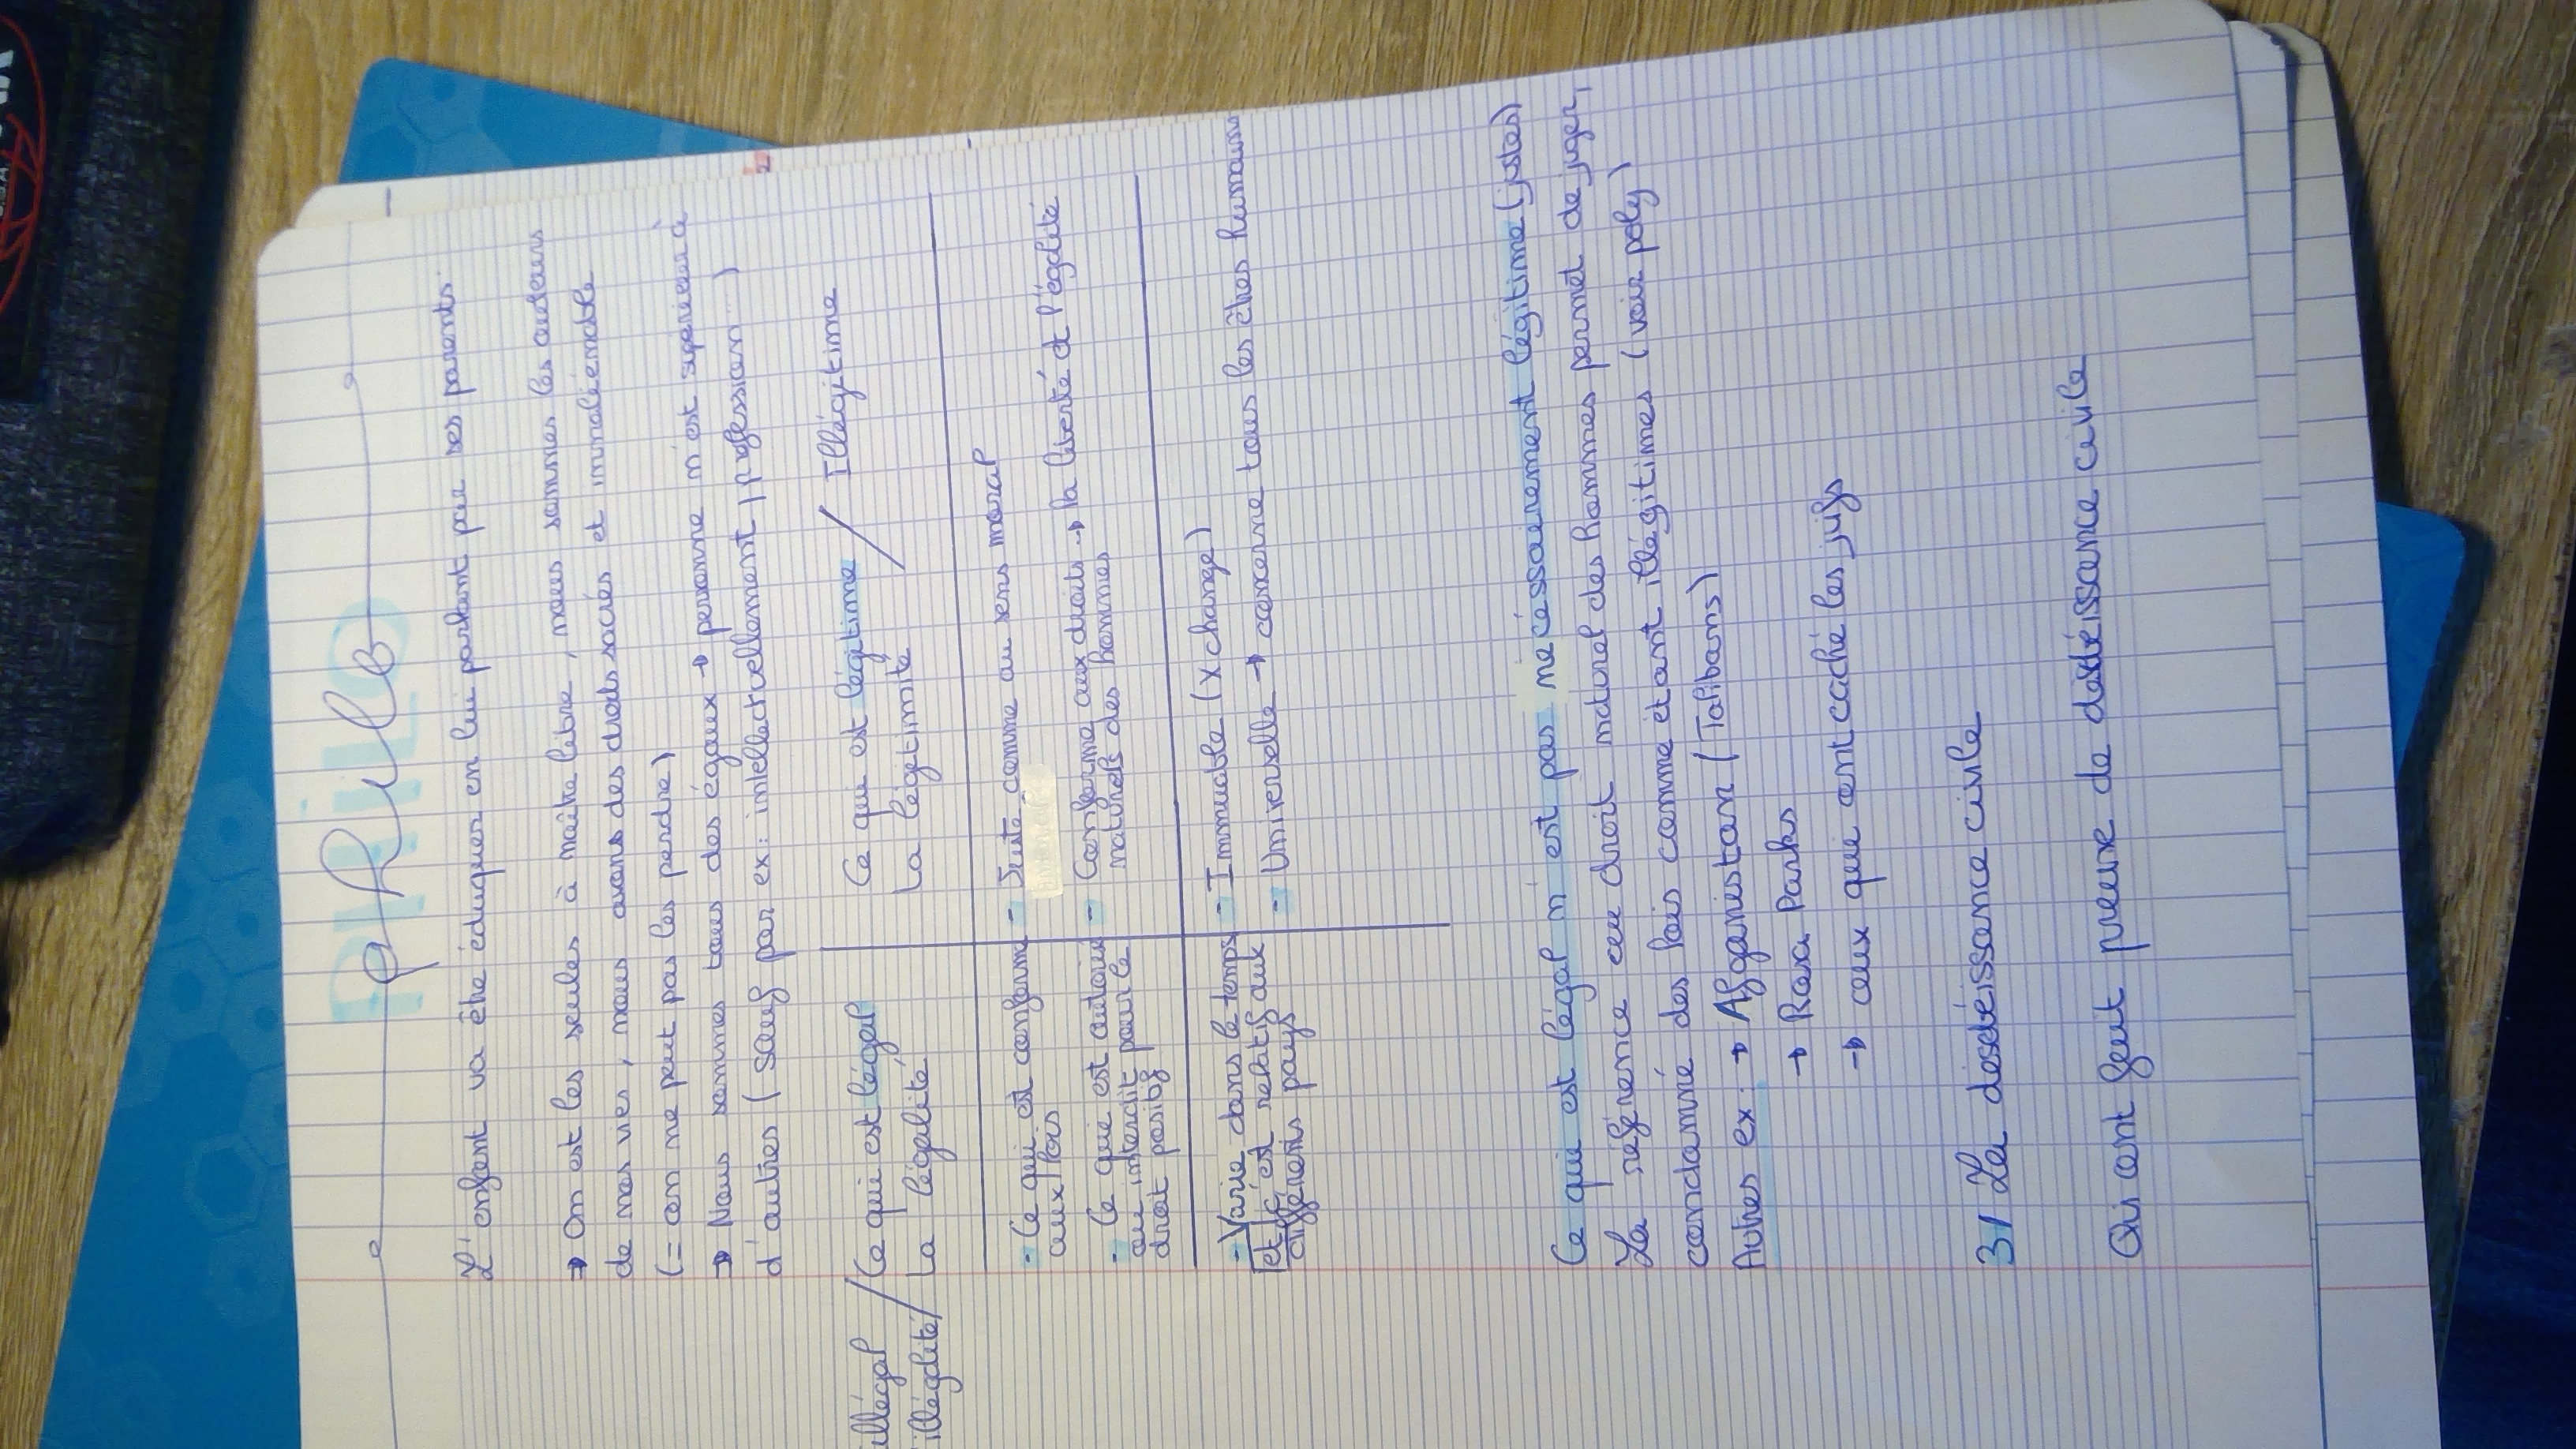 PHILO
philo
L'enfant va être éduquer en lui parlant par ses parents.
→ On est les seules à naître libre, nous sommes les auteurs
de nos vies, nous avons des droits sacrés et innaliénable
(= on ne peut pas les perdre)
→ Nous sommes tous des égaux → personne n'est supérieur à
d'autres (sauf par ex: intellectuellement, profession...)
illégal / Ce qui est légal
illégalité / La légalité
Ce qui est légitime / Illégitime
La légitimité
- Ce qui est conforme
aux lois
- Ce qui est autorisé
ou interdit pour le
droit positif
- Juste comme au sens moral
- Conforme aux droits → la liberté et l'égalité
naturels des hommes
- Varie dans le temps
et c'est relatif aux
différents pays
- Immuable (x change)
- Universelle → concerne tous les êtres humains
Ce qui est légal n'est pas nécéssairement légitime (justes)
La référence au droit naturel des hommes permet de juger,
condamné des lois comme étant illégitimes (voir poly)
Autres ex: → Afganistan (Talibans)
→ Rosa Parks
→ ceux qui ont caché les juifs
3/ La désobéissance civile
Qui ont fait preuve de désobéissance civile